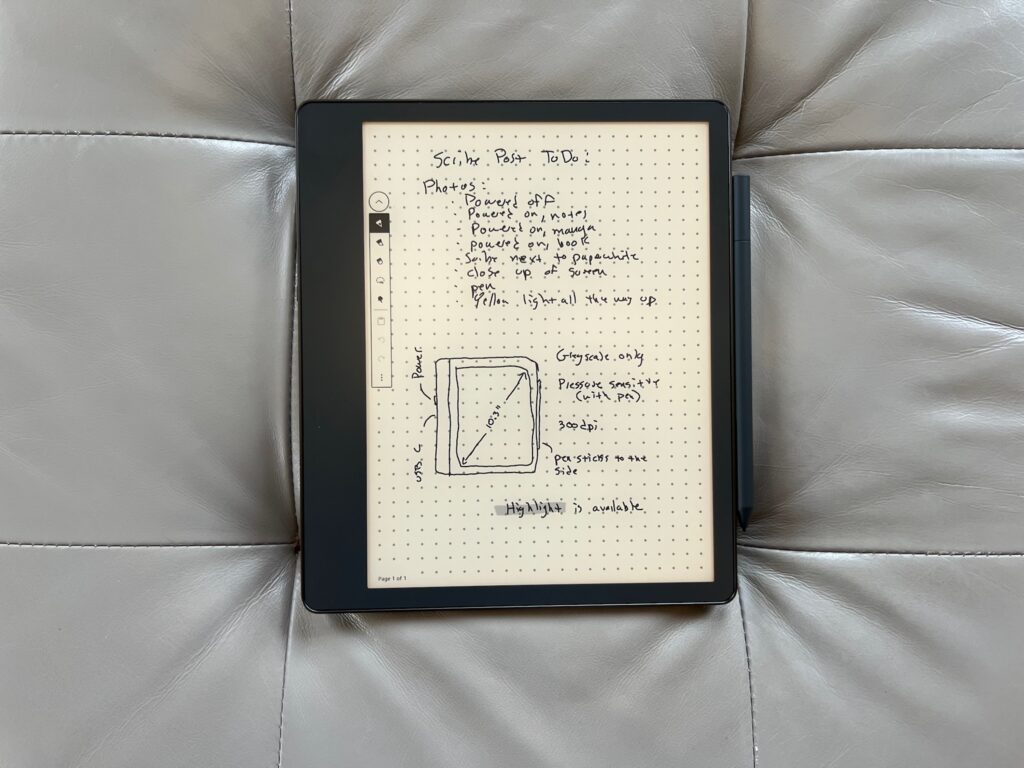 Scribe Post ToDo:
Photos:
· Powered off
· Powered on, notes
· Powered on, manga
· powered on, book
· Scribe next to paperwhite
· close up of screen
· pen
· Yellow light all the way up
Power
USB C
10.3"
Greyscale only
Pressure sensitivity
(with pen)
300dpi
pen sticks to the
side
Highlight is available
Page 1 of 1